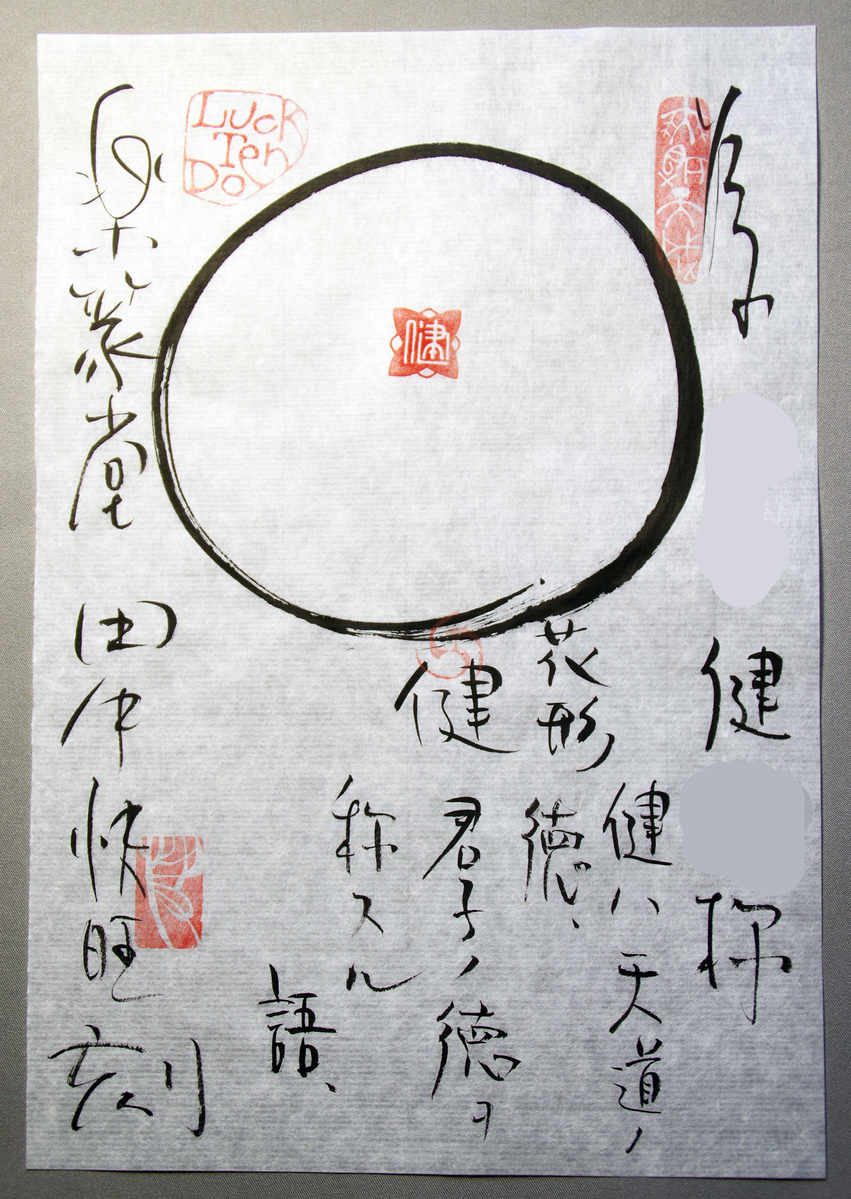 健 称
健ハ天道ノ
花形
徳、
健
君子ノ徳ヲ
称スル
語、
健
Luck
Ten
Do
楽篆堂 田中快旺 刻